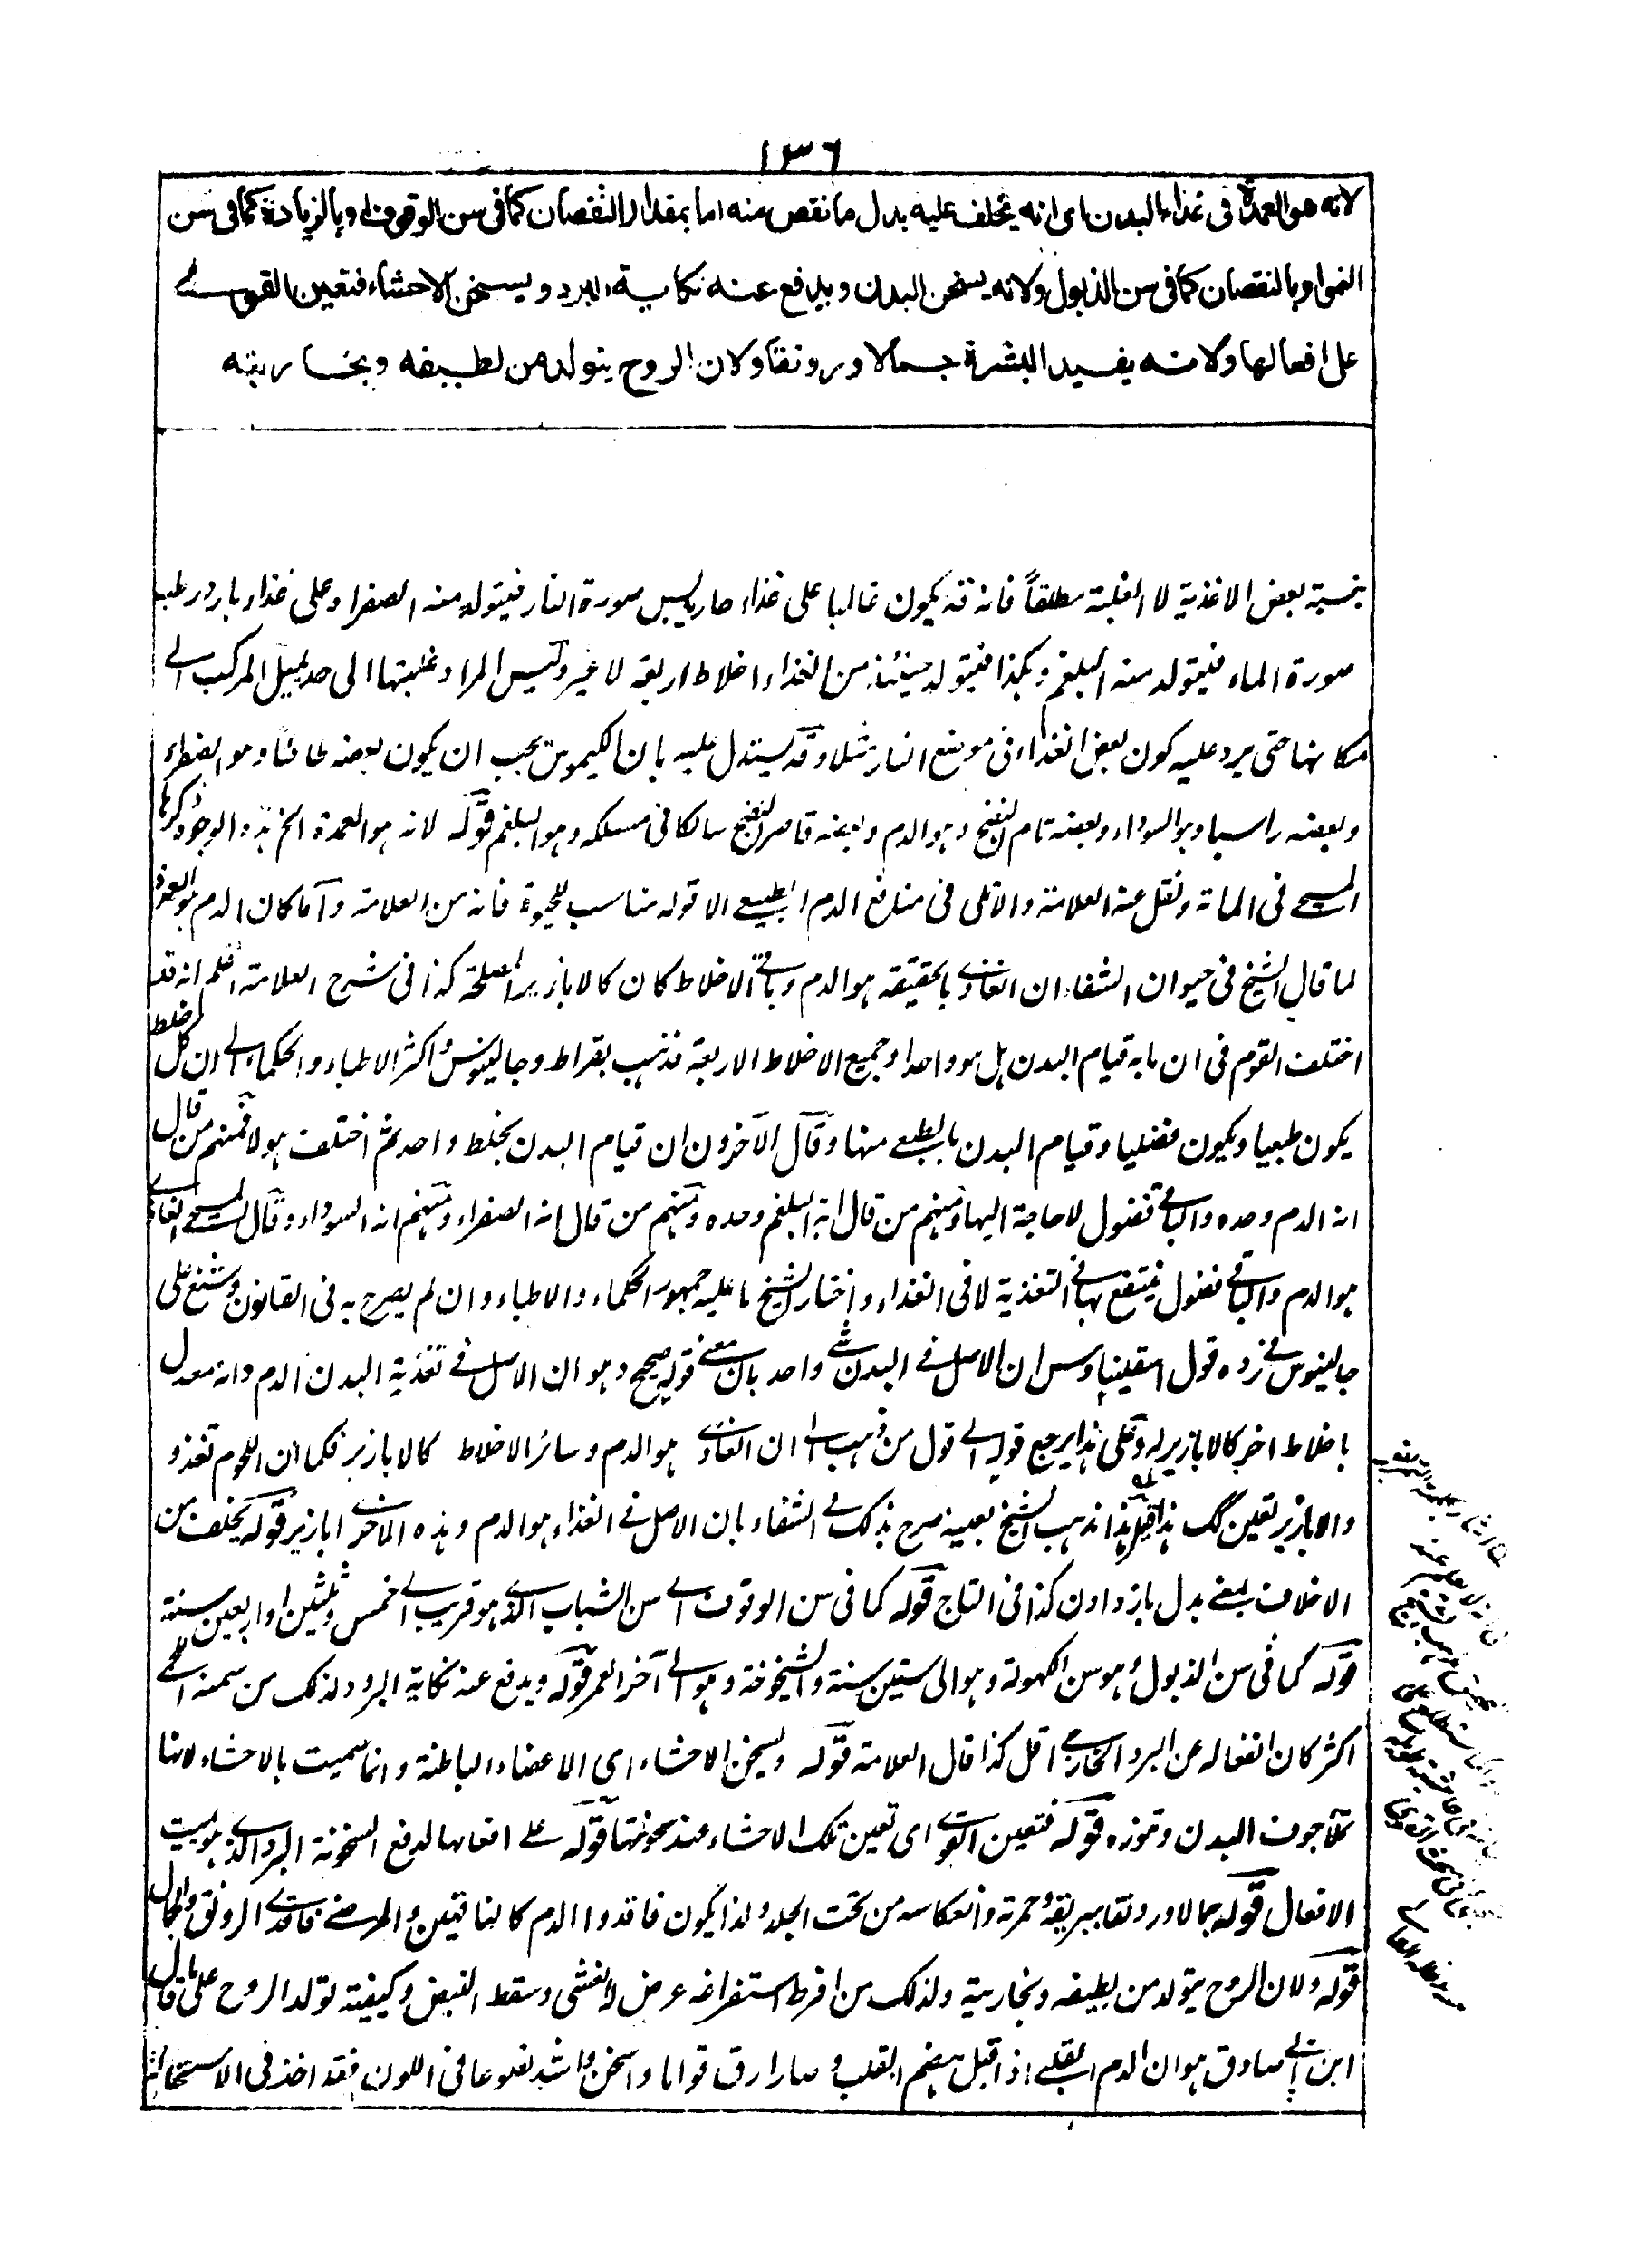 ١٣٦
لانه هو العمدة فى غذاء البدن اى انه يخلف عليه بدل ما نقص منه اما بمقدار النقصان كما فى سن الوقوف او بالزيادة كما فى سن
النمو او بالنقصان كما فى سن الذبول ولانه يسخن البدن ويدافع عنه نكاية البرد ويسخن الاحشاء فتعين القوى
على افعالها ولانه يفيد البشرة جمالا ورونقا ولان الروح يتولد من لطيفه وبخاريته
بنسبة بعض الاغذية لا الغلبة مطلقاً فانه قد يكون غالبا على غذاء حار يابس صورة النار فيتولد منه الصفراء وعلى غذاء بارد رطب
صورة الماء فيتولد منه البلغم وهكذا فيتولد حينئذ من الغذاء اخلاط اربعة لا غير وليس المراد غلبتها الى حد يميل المركب الى
مكانها حتى يرد عليه كون بعض الغذاء فى موضع النار مثلا وقد يستدل عليه بان الكيموس يجب ان يكون بعضه طافئا وهو الصفراء
وبعضه راسبا وهو السوداء وبعضه تام النضج وهو الدم وبعضه قاصر النضج سالكا فى مسلكه وهو البلغم قوله لانه هو العمدة الخ هذه الوجوه ذكرها
المسيحى فى المائة ونقل عنه العلامة والآملى فى منافع الدم الطبيعى الا قوله مناسب للحيوة فانه من العلامة وانما كان الدم هو العمدة
لما قال الشيخ فى حيوان الشفاء ان الغاذى بالحقيقة هو الدم وباقى الاخلاط كان كالابازير المصلحة كذا فى شرح العلامة اعلم انه قد
اختلف القوم فى ان ما به قيام البدن هل هو واحد او جميع الاخلاط الاربعة فذهب بقراط وجالينوس واكثر الاطباء والحكماء الى ان كل خلط
يكون طبعيا ويكون فضليا وقيام البدن بالطبيعى منها وقال الآخرون ان قيام البدن بخلط واحد ثم اختلف هولاء فمنهم من قال
انه الدم وحده والباقى فضول لا حاجة اليها ومنهم من قال انه البلغم وحده ومنهم من قال انه الصفراء ومنهم انه السوداء وقال المسيحى الغاذى
هو الدم والباقى فضول ينتفع بها فى التغذية لا فى الغذاء واختار الشيخ ما عليه جمهور الحكماء والاطباء وان لم يصرح به فى القانون وشنع على
جالينوس فى رده قول اسقلينيادس ان الاصل فى البدن شئ واحد بان معنى قوله صحيح وهو ان الاصل فى تغذية البدن الدم وانه معدل
باخلاط اخر كالابازير له وعلى هذا يرجع قوله الى قول من ذهب الى ان الغاذى هو الدم وسائر الاخلاط كالابازير فكما ان اللحوم تغذو
والابازير تعين كك هذا قيل هذا مذهب الشيخ بعينه صرح بذلك فى الشفاء بان الاصل فى الغذاء هو الدم وهذه الاخرى ابازير قوله يخلف من
الاخلاف بمعنى بدل باز دادن كذا فى التاج قوله كما فى سن الوقوف اى سن الشباب الذى هو قريب الى خمس وثلثين او اربعين سنة
قوله كما فى سن الذبول وهو سن الكهولة وهو الى ستين سنة والشيخوخة وهو الى آخر العمر قوله ويدفع عنه نكاية البرد ولذلك من سمنه اللحمى
اكثر كان انفعاله عن البرد الخارجى اقل كذا قال العلامة قوله ويسخن الاحشاء اى الاعضاء الباطنة وانما سميت بالاحشاء لانها
تملأ جوف البدن وتموزه قوله فتعين القوى اى تعين تلك الاحشاء عند سخونتها قوله على افعالها لدفع السخونة البرد الذى هو مميت
الافعال قوله جمالا ورونقا ببريقه وحمرته وانعكاسه من تحت الجلد ولذا يكون فاقدوا الدم كالناقهين والمرضى فاقدى الرونق والجمال
قوله ولان الروح يتولد من لطيفه وبخاريته ولذلك من افرط استفراغه عرض له الغشى وسقط النبض وكيفية تولد الروح على ما قال
ابن ابى صادق هو ان الدم القلبى اذا قبل هضم القلب وصار ارق قواما واسخن واشد نصوعا فى اللون فقد اخذ فى الاستحالة